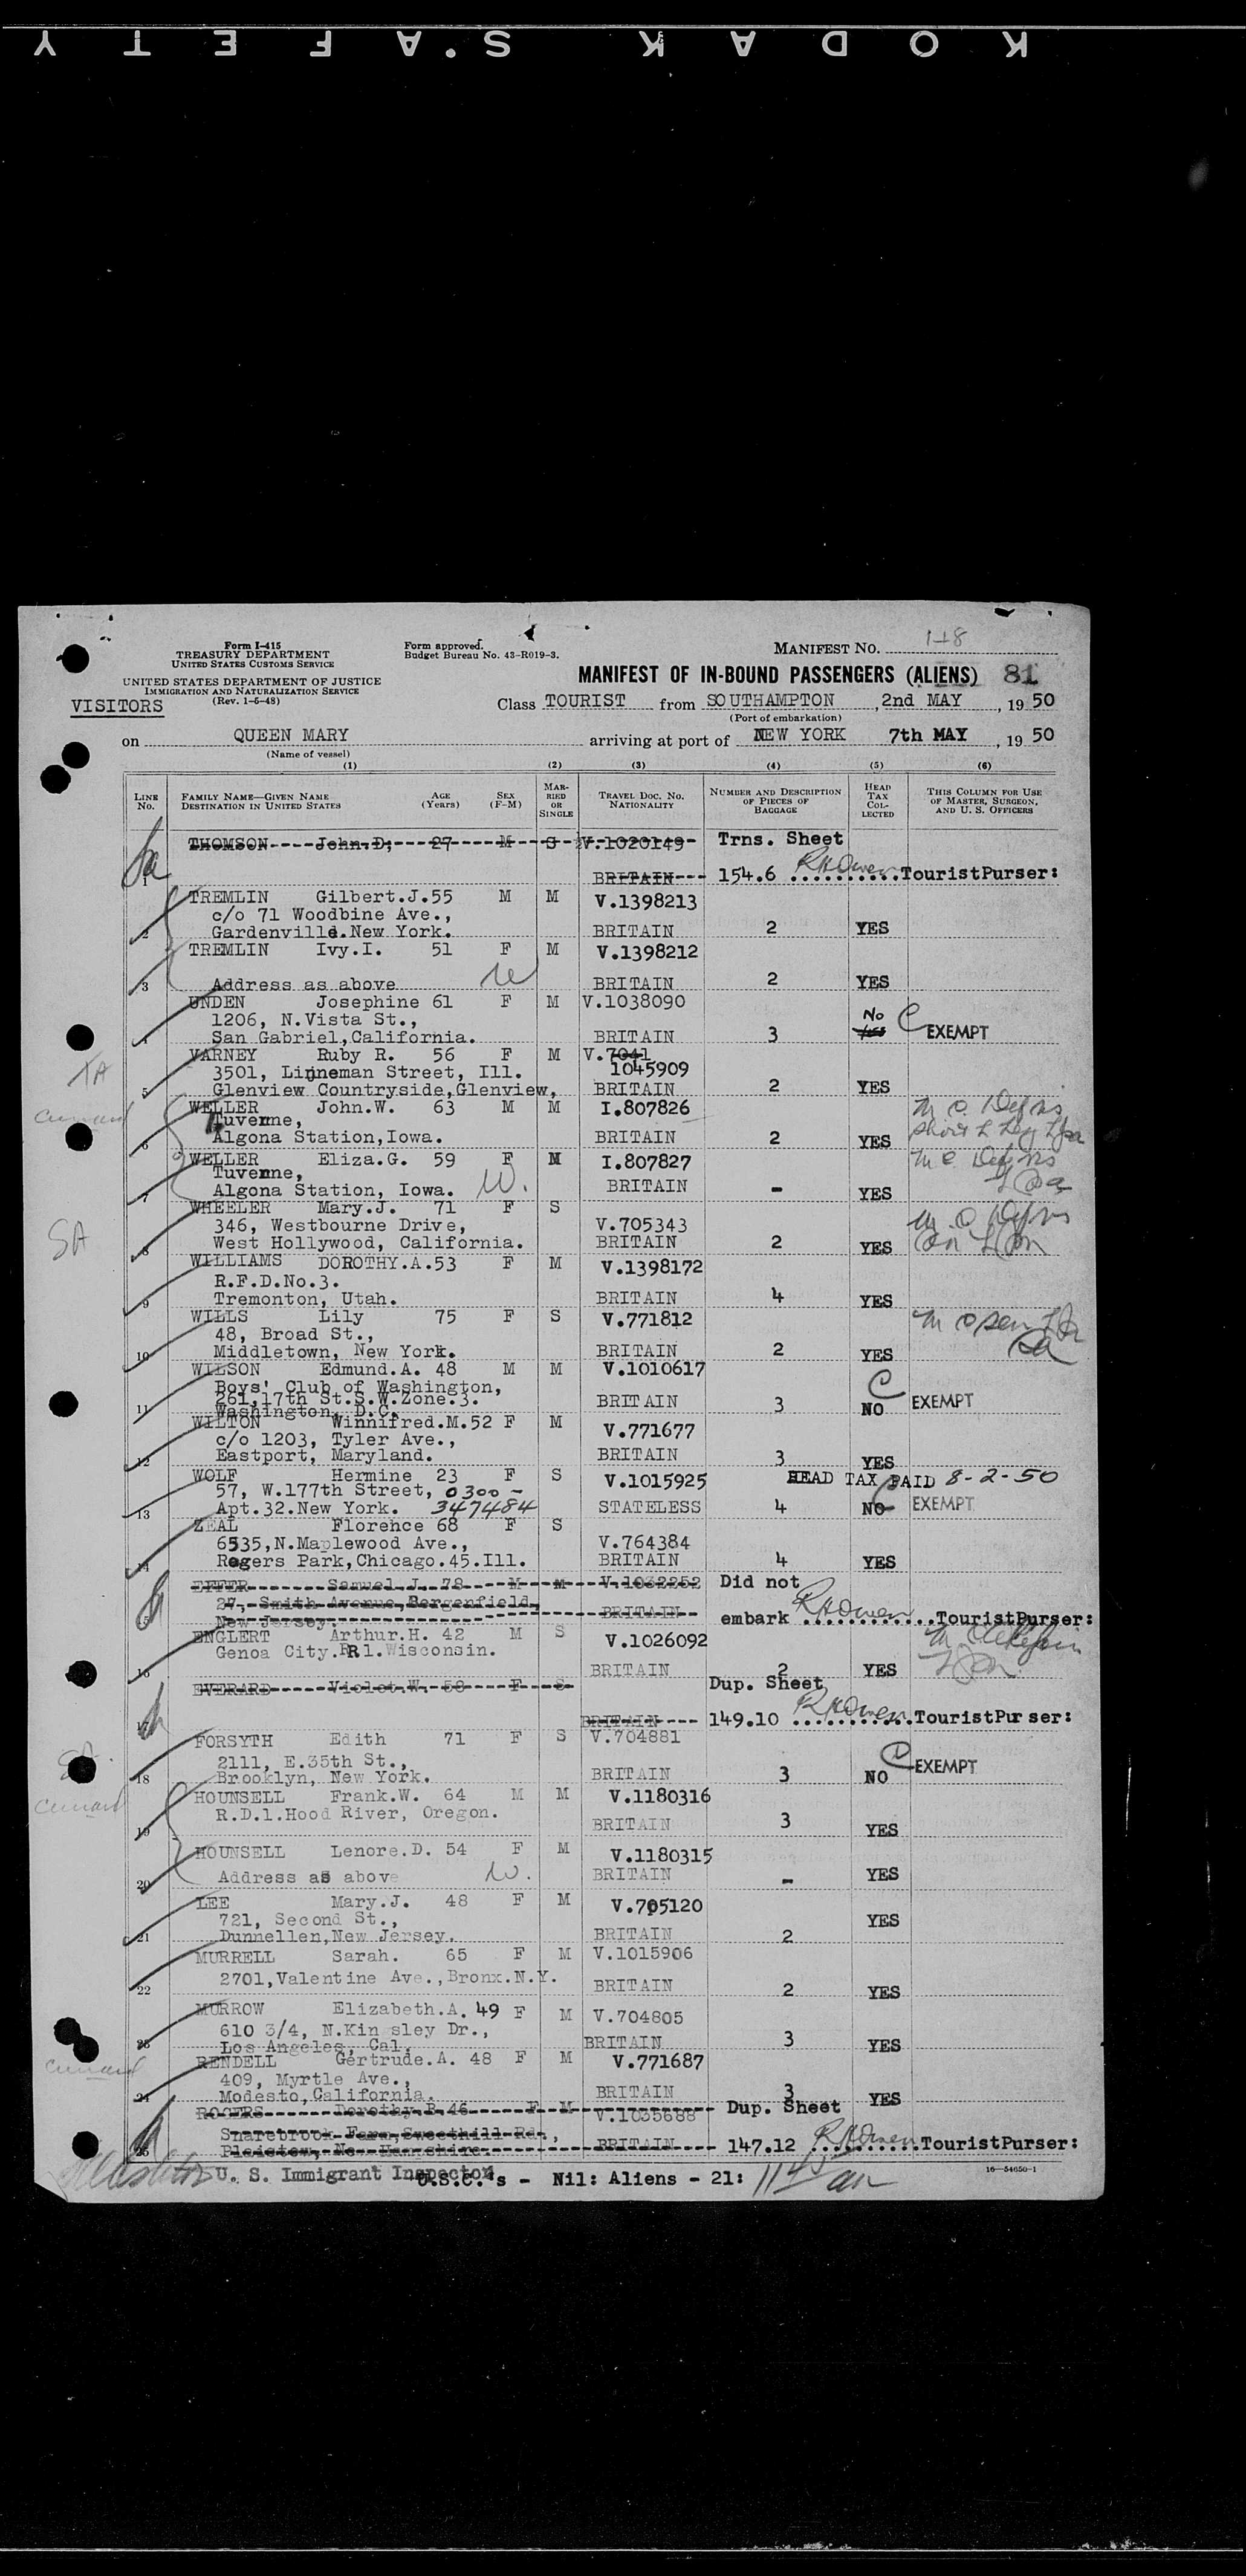 KODAK SAFETY
Form I-415
TREASURY DEPARTMENT
UNITED STATES CUSTOMS SERVICE
UNITED STATES DEPARTMENT OF JUSTICE
IMMIGRATION AND NATURALIZATION SERVICE
(Rev. 1-5-48)
VISITORS
Form approved.
Budget Bureau No. 43-R019-3.
MANIFEST NO. 118
MANIFEST OF IN-BOUND PASSENGERS (ALIENS) 81
Class TOURIST from SOUTHAMPTON, 2nd MAY, 1950
(Port of embarkation)
on QUEEN MARY arriving at port of NEW YORK 7th MAY, 1950
(Name of vessel)
(1) (2) (3) (4) (5) (6)
LINE NO. FAMILY NAME—GIVEN NAME DESTINATION IN UNITED STATES AGE (Years) SEX (F-M) MARRIED OR SINGLE TRAVEL DOC. NO. NATIONALITY NUMBER AND DESCRIPTION OF PIECES OF BAGGAGE HEAD TAX COLLECTED THIS COLUMN FOR USE OF MASTER, SURGEON, AND U. S. OFFICERS
THOMSON John.D; 27 M S V.1020149 Trns. Sheet
1 BRITAIN 154.6 RHOwen TouristPurser:
TREMLIN Gilbert.J.55 M M V.1398213
c/o 71 Woodbine Ave.,
2 Gardenville.New York. BRITAIN 2 YES
TREMLIN Ivy.I. 51 F M V.1398212
3 Address as above W BRITAIN 2 YES
UNDEN Josephine 61 F M V.1038090
1206, N.Vista St., No C
4 San Gabriel,California. BRITAIN 3 YES EXEMPT
VARNEY Ruby R. 56 F M V.7041
3501, Linneman Street, Ill. 1045909
5 Glenview Countryside,Glenview, BRITAIN 2 YES
WELLER John.W. 63 M M I.807826
Tuverne,
6 Algona Station,Iowa. BRITAIN 2 YES
WELLER Eliza.G. 59 F M I.807827
Tuverne,
7 Algona Station, Iowa. W. BRITAIN - YES
WHEELER Mary.J. 71 F S
346, Westbourne Drive, V.705343
8 West Hollywood, California. BRITAIN 2 YES
WILLIAMS DOROTHY.A.53 F M V.1398172
R.F.D.No.3.
9 Tremonton, Utah. BRITAIN 4 YES
WILLS Lily 75 F S V.771812
48, Broad St.,
10 Middletown, New York. BRITAIN 2 YES
WILSON Edmund.A. 48 M M V.1010617
Boys' Club of Washington, C
261,17th St.S.W.Zone.3. BRITAIN 3 NO EXEMPT
11 Washington, D.C.
WILTON Winnifred.M.52 F M V.771677
c/o 1203, Tyler Ave.,
12 Eastport, Maryland. BRITAIN 3 YES
WOLF Hermine 23 F S V.1015925 HEAD TAX PAID 8-2-50
57, W.177th Street, 0300 -
13 Apt.32.New York. 347484 STATELESS 4 NO EXEMPT
ZEAL Florence 68 F S
6535,N.Maplewood Ave., V.764384
14 Rogers Park,Chicago.45.Ill. BRITAIN 4 YES
EFFER Samuel.J. 78 M M V.1032252 Did not
27, Smith Avenue,Bergenfield, BRITAIN
15 New Jersey. embark RHOwen TouristPurser:
ENGLERT Arthur.H. 42 M S V.1026092
Genoa City.RR1.Wisconsin.
16 BRITAIN 2 YES
EVERARD Violet.W. 58 F S Dup. Sheet
17 BRITAIN 149.10 RHOwen TouristPurser:
FORSYTH Edith 71 F S V.704881
2111, E.35th St., C EXEMPT
18 Brooklyn, New York. BRITAIN 3 NO
HOUNSELL Frank.W. 64 M M V.1180316
R.D.1.Hood River, Oregon.
19 BRITAIN 3 YES
HOUNSELL Lenore.D. 54 F M V.1180315
20 Address as above W. BRITAIN - YES
LEE Mary.J. 48 F M V.705120
721, Second St., YES
21 Dunnellen,New Jersey. BRITAIN 2
MURRELL Sarah. 65 F M V.1015906
2701,Valentine Ave.,Bronx.N.Y.
22 BRITAIN 2 YES
MURROW Elizabeth.A. 49 F M V.704805
610 3/4, N.Kin sley Dr.,
23 Los Angeles, Cal. BRITAIN 3 YES
RENDELL Gertrude.A. 48 F M V.771687
409, Myrtle Ave.,
24 Modesto,California. BRITAIN 3 YES
ROGERS Dorothy.B.46 F M V.1035688 Dup. Sheet
Snarebrook Farm,Sweethill Rd.,
25 Plaistow, New Hampshire. BRITAIN 147.12 RHOwen TouristPurser:
U. S. Immigrant Inspector
U.S.C.'s - Nil: Aliens - 21: 1145 am
16—54650-1
TA
Cunard
SA
Cunard
Cunard